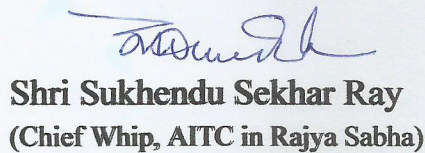 Shri Sukhendu Sekhar Ray
(Chief Whip, AITC in Rajya Sabha)